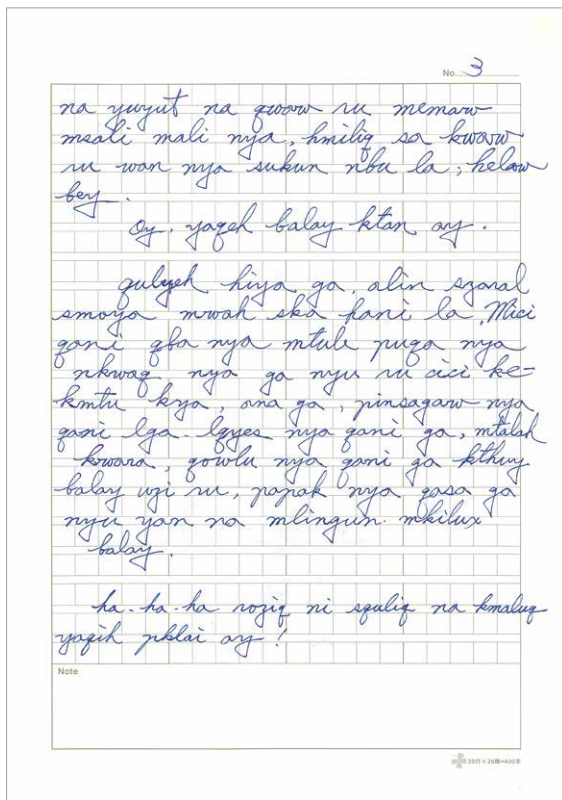 No. 3
na yuyut na qwaw ru memaw
msali mali nya, hmiliq sa kwaw
ru wan nya sukun nbu la, helaw
bey.
Oy. yaqeh balay ktan ay.
qulyeh hiya ga, alin szaral
smoya mwah ska hani la, Mici
qani qba nya mtule puqa nya
nkwaq nya ga nyu ru cici ke-
kmtu kya, ana ga, pinsagaw nya
qani lga. lqyes nya qani ga, mtalah
kwara, qowlu nya qani ga kthuy
balay uzi ru, papak nya qasa ga
nyu yan na mlingun. mkilux
balay.
ha-ha-ha roziq ni squliq na kmaluq
yaqih pklai ay!
Note
20行×20格=400字